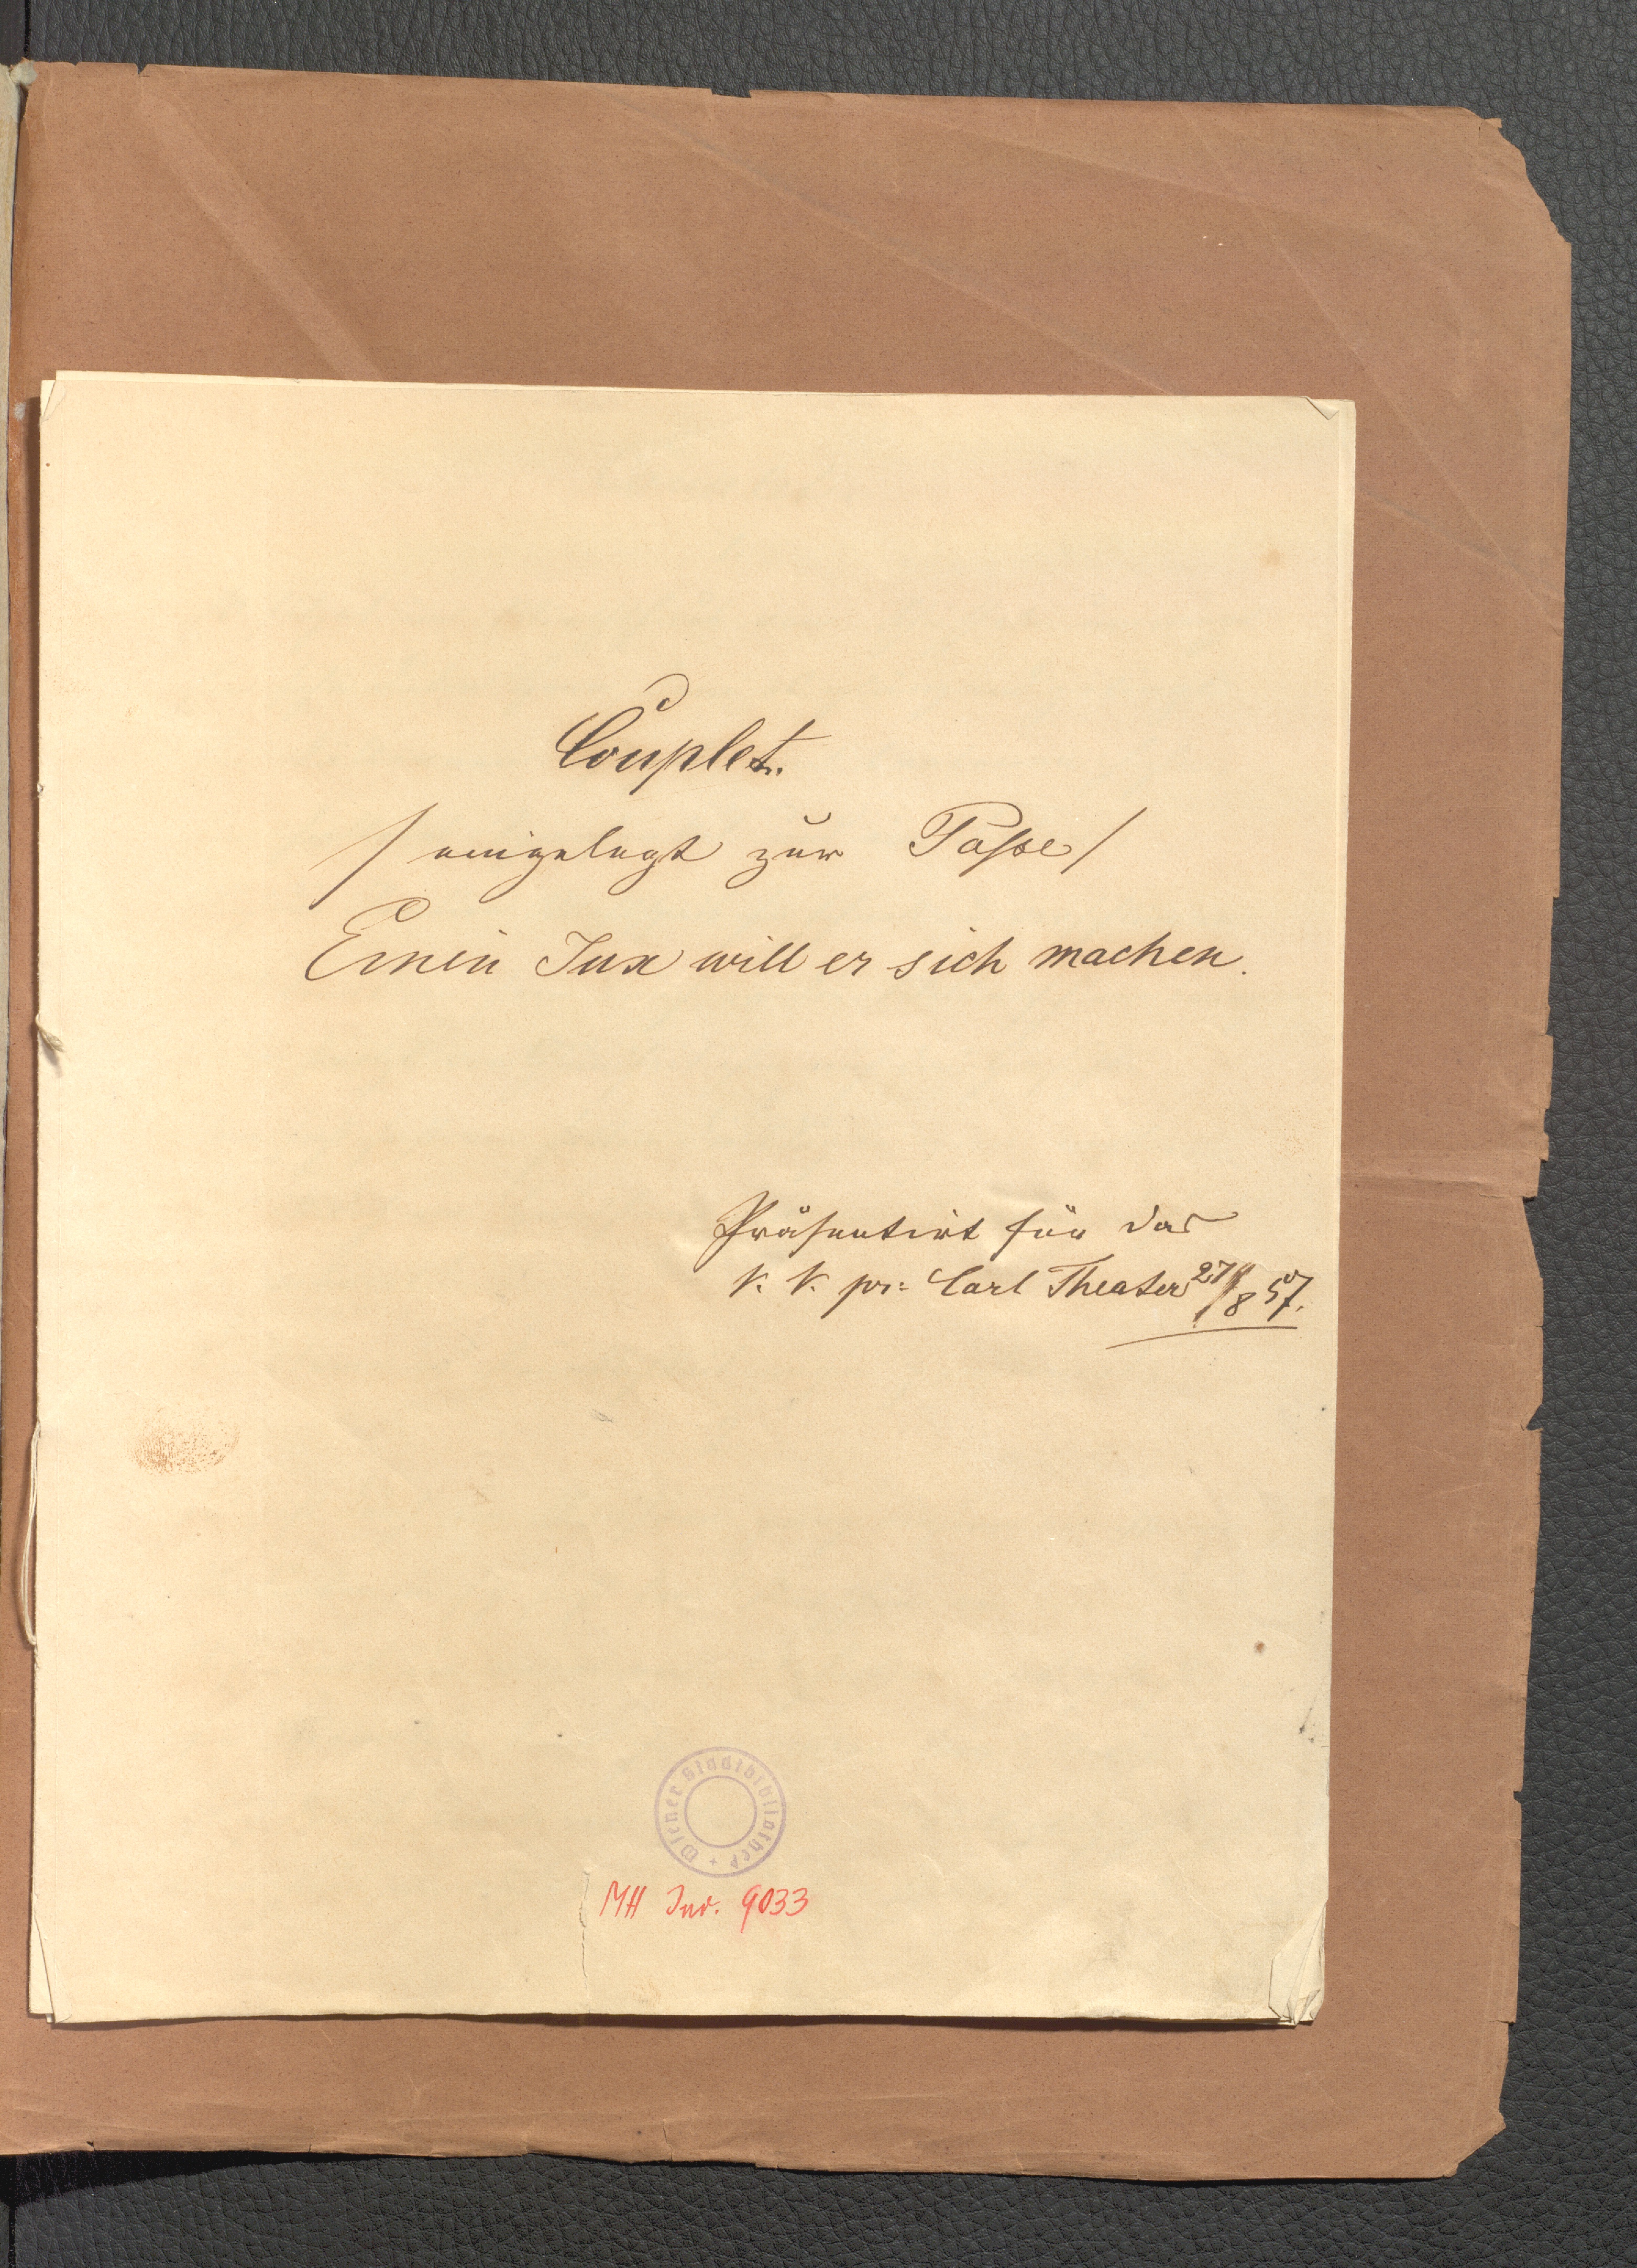 Couplet.
/ eingelegt zur Posse /
Einen Jux will er sich machen.
Präsentirt für das
k. k. pr: Carl Theater 27/8 57.
Wiener Stadtbibliothek +
MH Inv. 9033